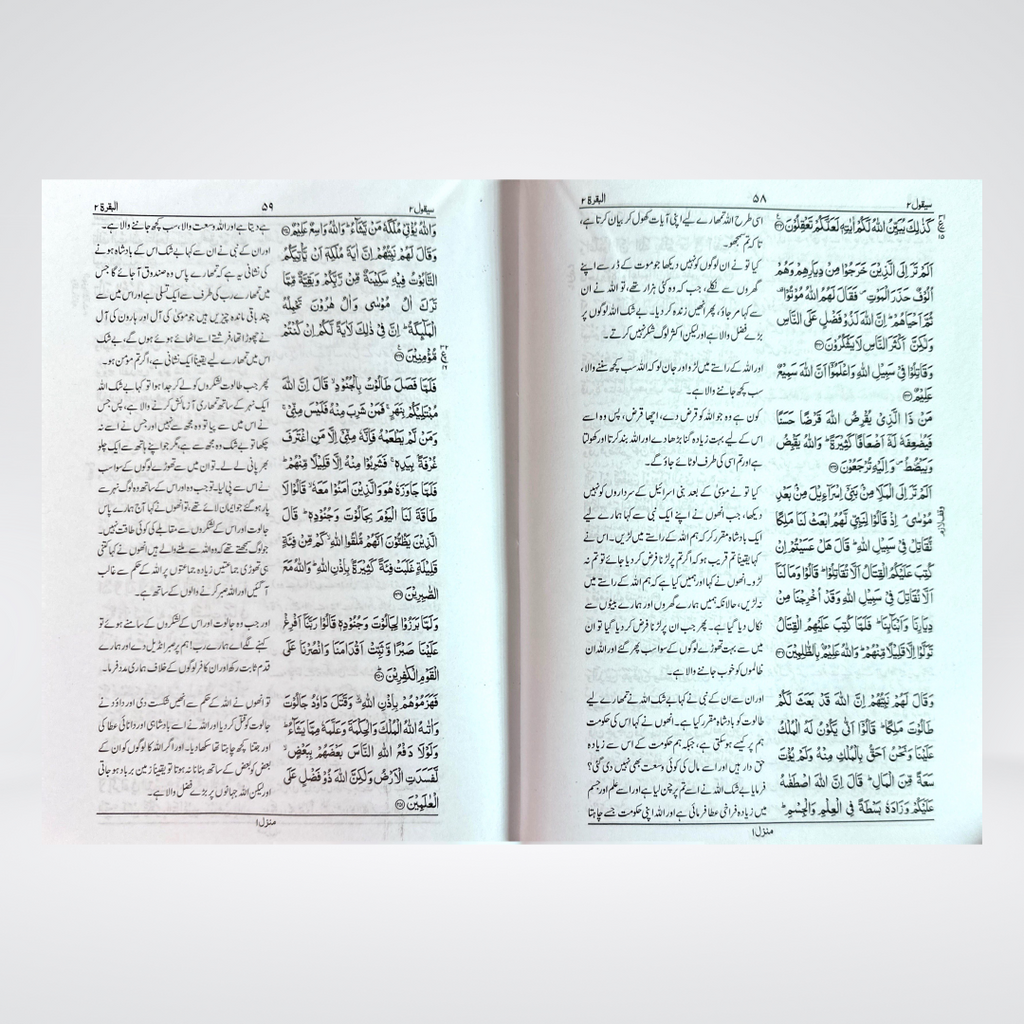 سیقول۲
۵۸
البقرة ۲
كَذٰلِكَ يُبَيِّنُ اللّٰهُ لَكُمْ اٰيٰتِهٖ لَعَلَّكُمْ تَعْقِلُوْنَ
اَلَمْ تَرَ اِلَى الَّذِيْنَ خَرَجُوْا مِنْ دِيَارِهِمْ وَهُمْ
اُلُوْفٌ حَذَرَ الْمَوْتِ ۪ فَقَالَ لَهُمُ اللّٰهُ مُوْتُوْا ۫
ثُمَّ اَحْيَاهُمْ ؕ اِنَّ اللّٰهَ لَذُوْ فَضْلٍ عَلَى النَّاسِ
وَلٰكِنَّ اَكْثَرَ النَّاسِ لَا يَشْكُرُوْنَ
وَقَاتِلُوْا فِيْ سَبِيْلِ اللّٰهِ وَاعْلَمُوْۤا اَنَّ اللّٰهَ سَمِيْعٌ
عَلِيْمٌ
مَنْ ذَا الَّذِيْ يُقْرِضُ اللّٰهَ قَرْضًا حَسَنًا
فَيُضٰعِفَهٗ لَهٗۤ اَضْعَافًا كَثِيْرَةً ؕ وَاللّٰهُ يَقْبِضُ
وَيَبْصُۜطُ ۪ وَاِلَيْهِ تُرْجَعُوْنَ
اَلَمْ تَرَ اِلَى الْمَلَاِ مِنْۢ بَنِيْۤ اِسْرَآءِيْلَ مِنْۢ بَعْدِ
مُوْسٰى ۘ اِذْ قَالُوْا لِنَبِيٍّ لَّهُمُ ابْعَثْ لَنَا مَلِكًا
نُّقَاتِلْ فِيْ سَبِيْلِ اللّٰهِ ؕ قَالَ هَلْ عَسَيْتُمْ اِنْ
كُتِبَ عَلَيْكُمُ الْقِتَالُ اَلَّا تُقَاتِلُوْا ؕ قَالُوْا وَمَا لَنَاۤ
اَلَّا نُقَاتِلَ فِيْ سَبِيْلِ اللّٰهِ وَقَدْ اُخْرِجْنَا مِنْ
دِيَارِنَا وَاَبْنَآئِنَا ؕ فَلَمَّا كُتِبَ عَلَيْهِمُ الْقِتَالُ
تَوَلَّوْا اِلَّا قَلِيْلًا مِّنْهُمْ ؕ وَاللّٰهُ عَلِيْمٌۢ بِالظّٰلِمِيْنَ
وَقَالَ لَهُمْ نَبِيُّهُمْ اِنَّ اللّٰهَ قَدْ بَعَثَ لَكُمْ
طَالُوْتَ مَلِكًا ؕ قَالُوْۤا اَنّٰى يَكُوْنُ لَهُ الْمُلْكُ
عَلَيْنَا وَنَحْنُ اَحَقُّ بِالْمُلْكِ مِنْهُ وَلَمْ يُؤْتَ
سَعَةً مِّنَ الْمَالِ ؕ قَالَ اِنَّ اللّٰهَ اصْطَفٰىهُ
عَلَيْكُمْ وَزَادَهٗ بَسْطَةً فِي الْعِلْمِ وَالْجِسْمِ ؕ
اسی طرح اللہ تمھارے لیے اپنی آیات کھول کر بیان کرتا ہے،
تاکہ تم سمجھو۔
کیا تو نے ان لوگوں کو نہیں دیکھا جو موت کے ڈر سے اپنے
گھروں سے نکلے، جب کہ وہ کئی ہزار تھے، تو اللہ نے ان
سے کہا مر جاؤ، پھر انھیں زندہ کر دیا۔ بے شک اللہ لوگوں پر
بڑے فضل والا ہے اور لیکن اکثر لوگ شکر نہیں کرتے۔
اور اللہ کے راستے میں لڑو اور جان لو کہ اللہ سب کچھ سننے والا،
سب کچھ جاننے والا ہے۔
کون ہے وہ جو اللہ کو قرض دے، اچھا قرض، پس وہ اسے
اس کے لیے بہت زیادہ گنا بڑھا دے اور اللہ بند کرتا اور کھولتا
ہے اور تم اسی کی طرف لوٹائے جاؤ گے۔
کیا تو نے موسیٰ کے بعد بنی اسرائیل کے سرداروں کو نہیں
دیکھا، جب انھوں نے اپنے ایک نبی سے کہا ہمارے لیے
ایک بادشاہ مقرر کر کہ ہم اللہ کے راستے میں لڑیں۔ اس نے
کہا یقیناً تم قریب ہو کہ اگر تم پر لڑنا فرض کر دیا جائے تو تم نہ
لڑو۔ انھوں نے کہا اور ہمیں کیا ہے کہ ہم اللہ کے راستے میں
نہ لڑیں، حالانکہ ہمیں ہمارے گھروں اور ہمارے بیٹوں سے
نکال دیا گیا ہے۔ پھر جب ان پر لڑنا فرض کر دیا گیا تو ان
میں سے بہت تھوڑے لوگوں کے سوا سب پھر گئے اور اللہ ان
ظالموں کو خوب جاننے والا ہے۔
اور ان سے ان کے نبی نے کہا بے شک اللہ نے تمھارے لیے
طالوت کو بادشاہ مقرر کیا ہے۔ انھوں نے کہا اس کی حکومت
ہم پر کیسے ہو سکتی ہے، جبکہ ہم حکومت کے اس سے زیادہ
حق دار ہیں اور اسے مال کی کوئی وسعت بھی نہیں دی گئی؟
فرمایا بے شک اللہ نے اسے تم پر چن لیا ہے اور اسے علم اور جسم
میں زیادہ فراخی عطا فرمائی ہے اور اللہ اپنی حکومت جسے چاہتا
وقف لازم
منزل ۱
سیقول۲
۵۹
البقرة ۲
وَاللّٰهُ يُؤْتِيْ مُلْكَهٗ مَنْ يَّشَآءُ ؕ وَاللّٰهُ وَاسِعٌ عَلِيْمٌ
وَقَالَ لَهُمْ نَبِيُّهُمْ اِنَّ اٰيَةَ مُلْكِهٖۤ اَنْ يَّاْتِيَكُمُ
التَّابُوْتُ فِيْهِ سَكِيْنَةٌ مِّنْ رَّبِّكُمْ وَبَقِيَّةٌ مِّمَّا
تَرَكَ اٰلُ مُوْسٰى وَاٰلُ هٰرُوْنَ تَحْمِلُهُ
الْمَلٰٓئِكَةُ ؕ اِنَّ فِيْ ذٰلِكَ لَاٰيَةً لَّكُمْ اِنْ كُنْتُمْ
مُّؤْمِنِيْنَ
فَلَمَّا فَصَلَ طَالُوْتُ بِالْجُنُوْدِ ۙ قَالَ اِنَّ اللّٰهَ
مُبْتَلِيْكُمْ بِنَهَرٍ ۚ فَمَنْ شَرِبَ مِنْهُ فَلَيْسَ مِنِّيْ ۚ
وَمَنْ لَّمْ يَطْعَمْهُ فَاِنَّهٗ مِنِّيْۤ اِلَّا مَنِ اغْتَرَفَ
غُرْفَةًۢ بِيَدِهٖ ۚ فَشَرِبُوْا مِنْهُ اِلَّا قَلِيْلًا مِّنْهُمْ ؕ
فَلَمَّا جَاوَزَهٗ هُوَ وَالَّذِيْنَ اٰمَنُوْا مَعَهٗ ۙ قَالُوْا لَا
طَاقَةَ لَنَا الْيَوْمَ بِجَالُوْتَ وَجُنُوْدِهٖ ؕ قَالَ
الَّذِيْنَ يَظُنُّوْنَ اَنَّهُمْ مُّلٰقُوا اللّٰهِ ۙ كَمْ مِّنْ فِئَةٍ
قَلِيْلَةٍ غَلَبَتْ فِئَةً كَثِيْرَةًۢ بِاِذْنِ اللّٰهِ ؕ وَاللّٰهُ مَعَ
الصّٰبِرِيْنَ
وَلَمَّا بَرَزُوْا لِجَالُوْتَ وَجُنُوْدِهٖ قَالُوْا رَبَّنَاۤ اَفْرِغْ
عَلَيْنَا صَبْرًا وَّثَبِّتْ اَقْدَامَنَا وَانْصُرْنَا عَلَى
الْقَوْمِ الْكٰفِرِيْنَ
فَهَزَمُوْهُمْ بِاِذْنِ اللّٰهِ ۙ وَقَتَلَ دَاوٗدُ جَالُوْتَ
وَاٰتٰىهُ اللّٰهُ الْمُلْكَ وَالْحِكْمَةَ وَعَلَّمَهٗ مِمَّا يَشَآءُ ؕ
وَلَوْلَا دَفْعُ اللّٰهِ النَّاسَ بَعْضَهُمْ بِبَعْضٍ ۙ
لَّفَسَدَتِ الْاَرْضُ وَلٰكِنَّ اللّٰهَ ذُوْ فَضْلٍ عَلَى
الْعٰلَمِيْنَ
ہے دیتا ہے اور اللہ وسعت والا، سب کچھ جاننے والا ہے۔
اور ان کے نبی نے ان سے کہا بے شک اس کے بادشاہ ہونے
کی نشانی یہ ہے کہ تمھارے پاس وہ صندوق آ جائے گا جس
میں تمھارے رب کی طرف سے ایک تسلی ہے اور اس میں سے
چند باقی ماندہ چیزیں ہیں جو موسیٰ کی آل اور ہارون کی آل
نے چھوڑا تھا، فرشتے اسے اٹھائے ہوئے ہوں گے، بے شک
اس میں تمھارے لیے یقیناً ایک نشانی ہے، اگر تم مومن ہو۔
پھر جب طالوت لشکروں کو لے کر جدا ہوا تو کہا بے شک اللہ
ایک نہر کے ساتھ تمھاری آزمائش کرنے والا ہے، پس جس
نے اس میں سے پیا تو وہ مجھ سے نہیں اور جس نے اسے نہ
چکھا تو بے شک وہ مجھ سے ہے، مگر جو اپنے ہاتھ سے ایک چلو
بھر پانی لے لے۔ تو ان میں سے تھوڑے لوگوں کے سوا سب
نے اس سے پی لیا۔ تو جب وہ اور اس کے ساتھ وہ لوگ نہر سے
پار ہو گئے جو ایمان لائے تھے، تو انھوں نے کہا آج ہمارے پاس
جالوت اور اس کے لشکروں سے مقابلے کی کوئی طاقت نہیں۔
جو لوگ سمجھتے تھے کہ وہ اللہ سے ملنے والے ہیں انھوں نے کہا کتنی
ہی تھوڑی جماعتیں زیادہ جماعتوں پر اللہ کے حکم سے غالب
آ گئیں اور اللہ صبر کرنے والوں کے ساتھ ہے۔
اور جب وہ جالوت اور اس کے لشکروں کے سامنے ہوئے تو
کہنے لگے اے ہمارے رب! ہم پر صبر انڈیل دے اور ہمارے
قدم ثابت رکھ اور ان کافر لوگوں کے خلاف ہماری مدد فرما۔
تو انھوں نے اللہ کے حکم سے انھیں شکست دی اور داؤد نے
جالوت کو قتل کر دیا اور اللہ نے اسے بادشاہی اور دانائی عطا کی
اور جتنا کچھ چاہتا تھا سکھا دیا۔ اور اگر اللہ کا لوگوں کو ان کے
بعض کو بعض کے ساتھ ہٹانا نہ ہوتا تو یقیناً زمین برباد ہو جاتی
اور لیکن اللہ جہانوں پر بڑے فضل والا ہے۔
منزل ۱